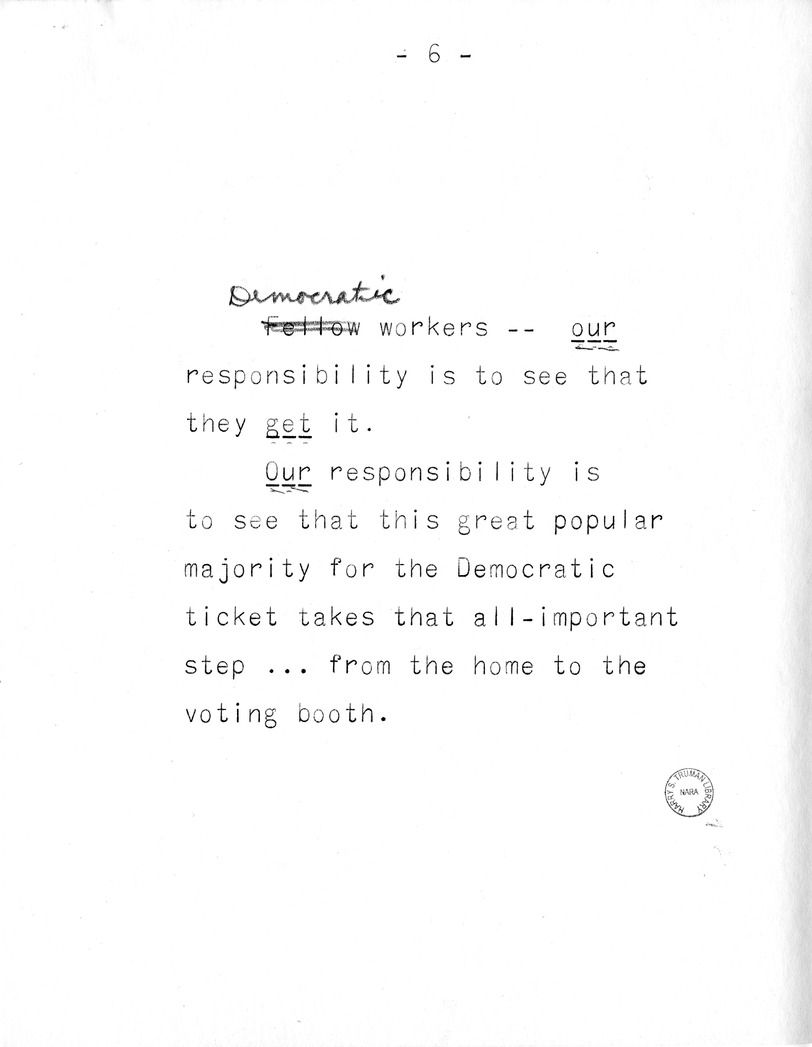 - 6 -
Democratic
Fellow workers -- our
responsibility is to see that
they get it.
Our responsibility is
to see that this great popular
majority for the Democratic
ticket takes that all-important
step ... from the home to the
voting booth.
HARRY S. TRUMAN LIBRARY
NARA